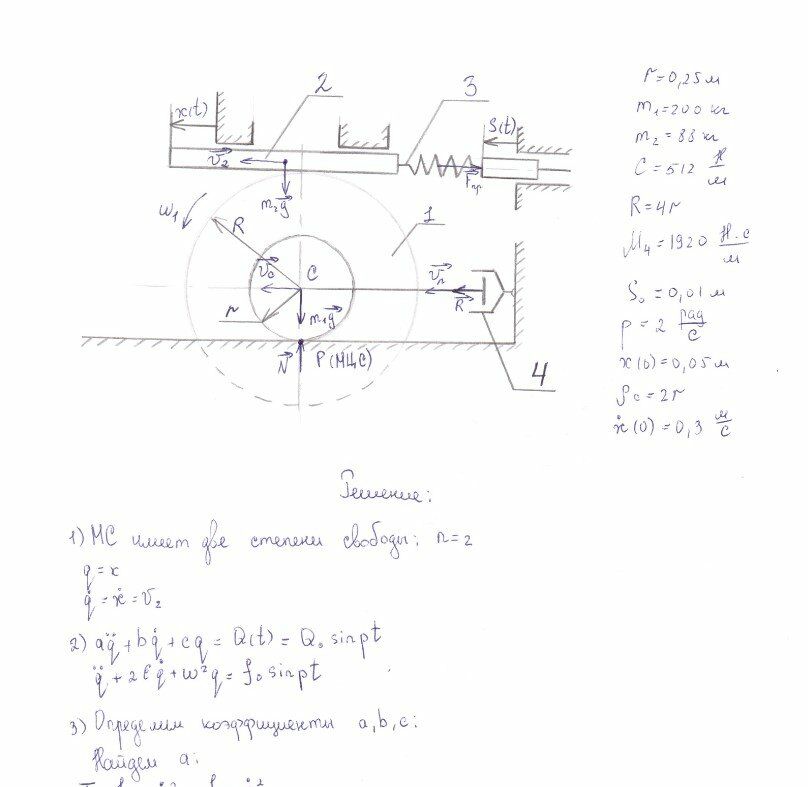 2
3
x(t)
S(t)
v₂
Fпр
m₂g
ω₁
R
1
v_c
C
v_n
r
m₁g
R
N
P (МЦС)
4
r=0,25 м
m₁=200 кг
m₂=88 кг
C=512 Н/м
R=4r
M₄=1920 Н·с/м
S₀=0,01 м
p=2 рад/с
x(0)=0,05 м
ρc=2r
ẋ(0)=0,3 м/с
Решение:
1) МС имеет две степени свободы: n=2
q=x
q̇=ẋ=v₂
2) aq̈+bq̇+cq=Q(t)=Q₀ sinpt
q̈+2εq̇+ω²q=f₀ sinpt
3) Определим коэффициенты a,b,c:
Найдем a: